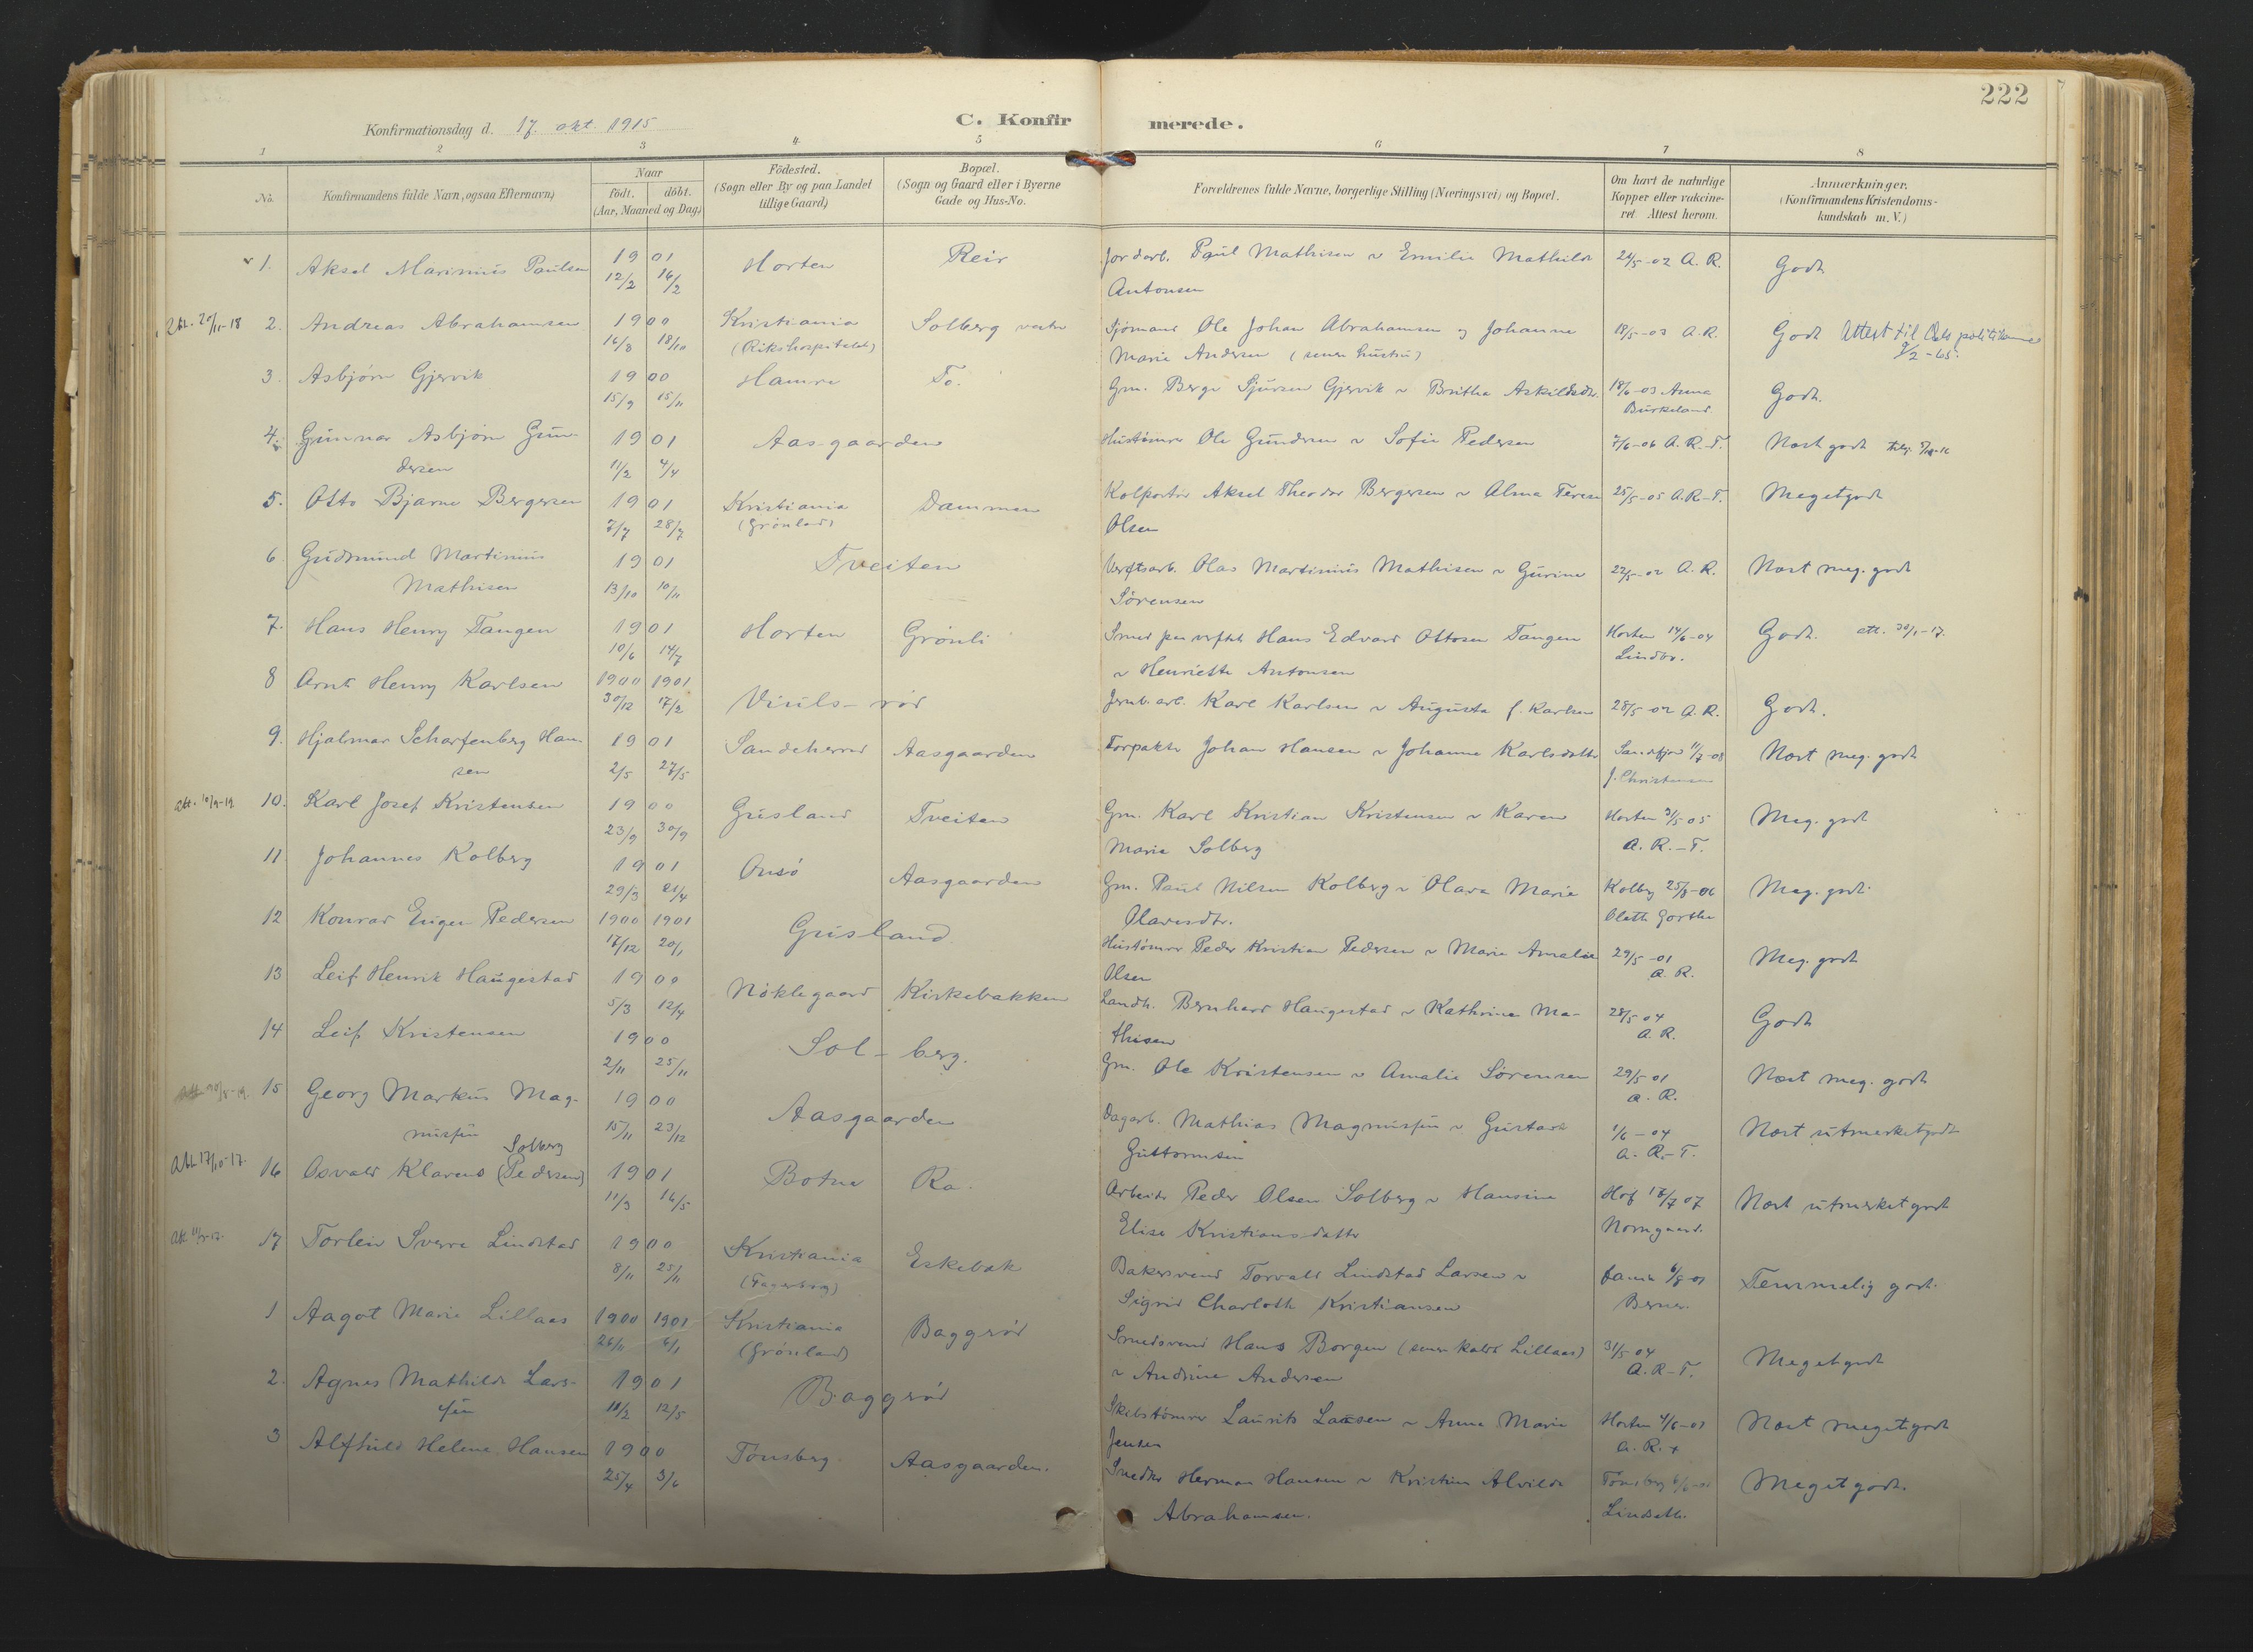 222
Konfirmationsdag d. 17. okt. 1915
C. Konfirmerede.
1 2 3 4 5 6 7 8
No.
Konfirmandens fulde Navn, ogsaa Efternavn)
Naar
födt. döbt.
(Aar, Maaned og Dag)
Födested.
(Sogn eller By og paa Landet
tillige Gaard)
Bopæl.
(Sogn og Gaard eller i Byerne
Gade og Hus-No.
Forældrenes fulde Navne, borgerlige Stilling (Næringsvei) og Bopæl.
Om havt de naturlige
Kopper eller vakcine-
ret. Attest herom.
Anmærkninger.
(Konfirmandens Kristendoms-
kundskab m. V.)
1. Aksel Marinius Paulsen 1901 12/2 16/2 Horten Reir Jordarb. Paul Mathisen & Emilie Mathilde
Antonsen 24/5-02 A. R. Godt
Att. 20/11-18 2. Andreas Abrahamsen 1900 16/8 18/10 Kristiania
(Rikshospitalet) Solberg vestre Sjömand Ole Johan Abrahamsen og Johanne
Marie Andersen (senere hustru) 18/5-03 A.R. Godt Attest til Oslo
2/2-65.
3. Asbjörn Gjervik 1900 15/9 15/11 Hamre To. Gm. Berge Sjursen Gjervik & Britha Askildsdtr. 18/6-03 Anna
Burkeland Godt.
4. Gunnar Asbjörn Gun-
dersen 1901 11/2 4/4 Aasgaarden Hustömrer Ole Gundersen & Sofie Pedersen 7/6-06 A.R.-T. Næst godt
5. Otto Bjarne Bergersen 1901 7/7 28/7 Kristiania
(Grönland) Dammen Kolportör Aksel Theodor Bergersen & Alma Terese
Olsen 25/5-05 A.R-T. Meget godt
6. Gudmund Martinius
Mathisen 1901 13/10 10/11 Tveiten Verftsarb. Olas Martinius Mathisen & Gurine
Sörensen 22/5-02 A. R. Næst meg. godt
7. Hans Henry Tangen 1901 10/6 14/7 Horten Grönli Smed paa verftet Hans Edvard Ottosen Tangen
& Henriette Antonsen Horten 14/6-04
Lindbo. Godt. att. 30/1-17.
8 Arnt Henry Karlsen 1900 1901 30/12 17/2 Viuls-rör Jernb. arb. Karl Karlsen & Augusta f. Karlsen 28/5 02 A. R. Godt.
9. Hjalmar Scharfenberg Han-
sen 1901 2/5 27/5 Sandeherred Aasgaarden Forpakter Johan Hansen & Johanne Karlsdatter 11/7-03
J. Christensen Næst meg. godt
att. 10/9-19 10. Karl Josef Kristensen 1900 23/9 30/9 Grisland Tveiten Gm. Karl Kristian Kristensen & Karen
Marie Solberg Horten 05
A. R.-T. Meg. godt
11. Johannes Kolberg 1901 29/3 21/4 Onsö Aasgaarden Gm. Paul Nilsen Kolberg & Olava Marie
Olavesdtr. Kolberg 25/8-06
Meg. godt.
12 Konrad Eugen Pedersen 1900 1901 17/12 20/1 Grisland Hustömrer Peder Kristian Pedersen & Marie Amalie
Olsen 29/5-01
A. R. Meg. godt
13 Leif Henrik Haugestad 1900 5/3 12/4 Nöklegaard Kirkebakken Landh. Bernhard Haugestad & Kathrine Ma-
thisen 28/5 04
A. R. Godt
14 Leif Kristensen 1900 2/11 25/11 Sol-berg. Gm. Ole Kristensen & Amalie Sörensen 29/5 01
A. R. Næst meg. godt
15 Georg Markus Mag-
nussen 1900 15/11 23/12 Aasgaarden Dagarb. Mathias Magnussen & Gustava
Guttormsen 1/6-04
A. R.-T. Næst utmerket godt
Att 17/10-17. 16 Osvald Klareus (Pedersen) Solberg 1901 11/3 16/5 Botne Ra. Arbeider Peder Olsen Solberg & Hansine
Elise Kristiansdatter Hof 07
Norngaard. Næst utmerket godt
17 Torleiv Sverre Lindstad 1900 8/11 25/11 Kristiania
(Fagerborg) Eskebæk Bakersvend Torvald Lindstad Larsen &
Sigrid Charlotte Kristiansen 6/8-01
Berner. Temmelig godt.
1 Aagot Marie Lillaas 1900 1901 26/11 6/1 Kristiania
(Grönland) Baggeröd Smedsvend Hans Borgen (senere kaldt Lillaas)
& Andrine Andersen 31/5-04
A. R-T. Meget godt
2. Agnes Mathilde Lars-
sen 1901 11/2 12/5 Baggeröd Skibstömrer Laurits Larsen & Anna Marie
Jensen Horten 4/6-01
A. R. Næst meget godt
3 Alfhild Helene Hansen 1900 25/4 3/6 Tönsberg Aasgaarden. Snedker Herman Hansen & Kristine Alvilde
Abrahamsen. Tönsberg
Meget godt.